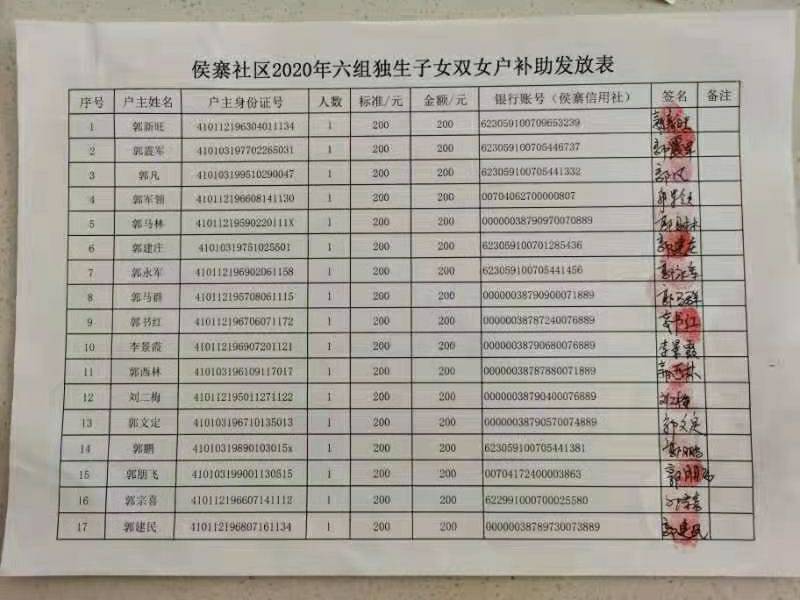 侯寨社区2020年六组独生子女双女户补助发放表
序号 户主姓名 户主身份证号 人数 标准/元 金额/元 银行账号（侯寨信用社） 签名 备注
1 郭新旺 410112196304011134 1 200 200 623059100709653239
2 郭霞军 410103197702265031 1 200 200 623059100705446737 郭霞军
3 郭凡 410103199510290047 1 200 200 623059100705441332 郭凡
4 郭军领 410112196608141130 1 200 200 00704062700000807
5 郭马林 41011219590220111X 1 200 200 00000038790970070889
6 郭建庄 41010319751025501 1 200 200 623059100701285436 郭建庄
7 郭永军 410112196902061158 1 200 200 623059100705441456 郭永军
8 郭马群 410112195708061115 1 200 200 00000038790900071889 郭马群
9 郭书红 410112196706071172 1 200 200 00000038787240076889
10 李景霞 410112196907201121 1 200 200 00000038790680076889 李景霞
11 郭西林 410103196109117017 1 200 200 00000038787880071889 郭西林
12 刘二梅 410112195011271122 1 200 200 00000038790400076689
13 郭文定 410103196710135013 1 200 200 00000038790570074889 郭文定
14 郭鹏 41010319890103015x 1 200 200 623059100705441381 郭鹏
15 郭朋飞 410103199001130515 1 200 200 00704172400003863 郭朋飞
16 郭宗喜 410112196607141112 1 200 200 622991000700025580
17 郭建民 410112196807161134 1 200 200 00000038789730073889 郭建民